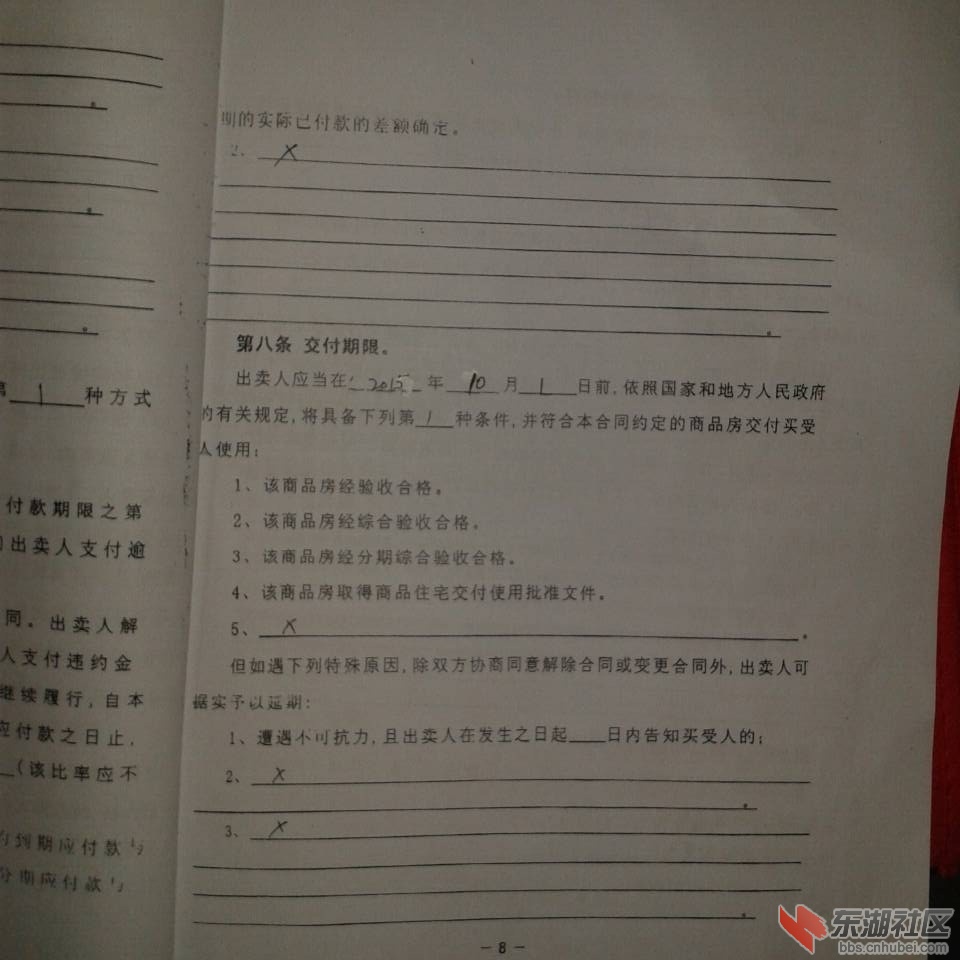 第 1 种方式
付款期限之第
出卖人支付逾
同。出卖人解
人支付违约金
继续履行,自本
应付款之日止,
(该比率应不
到期应付款
分期应付款
期的实际已付款的差额确定。
2. ×
第八条 交付期限。
出卖人应当在 2015 年 10 月 1 日前,依照国家和地方人民政府
的有关规定,将具备下列第 1 种条件,并符合本合同约定的商品房交付买受
人使用:
1、该商品房经验收合格。
2、该商品房经综合验收合格。
3、该商品房经分期综合验收合格。
4、该商品房取得商品住宅交付使用批准文件。
5、 × 。
但如遇下列特殊原因,除双方协商同意解除合同或变更合同外,出卖人可
据实予以延期:
1、遭遇不可抗力,且出卖人在发生之日起____日内告知买受人的;
2、 ×
3、 ×
- 8 -
东湖社区
bbs.cnhubei.com